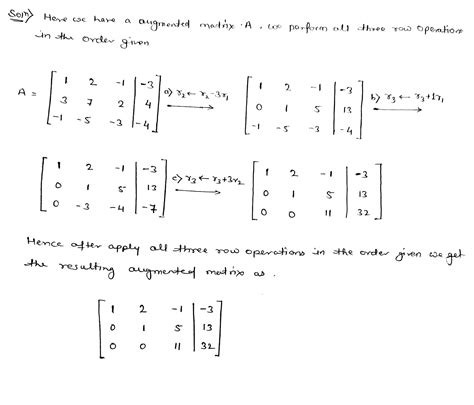 Soln) Here we have a augmented matrix A, we perform all three row operations
in the order given
A = [ 1 2 -1 | -3 ; 3 7 2 | 4 ; -1 -5 -3 | -4 ] a) r2 ← r2-3r1 → [ 1 2 -1 | -3 ; 0 1 5 | 13 ; -1 -5 -3 | -4 ] b) r3 ← r3+1r1 →
[ 1 2 -1 | -3 ; 0 1 5 | 13 ; 0 -3 -4 | -7 ] c) r3 ← r3+3r2 → [ 1 2 -1 | -3 ; 0 1 5 | 13 ; 0 0 11 | 32 ]
Hence after apply all three row operations in the order given we get
the resulting augmented matrix as .
[ 1 2 -1 | -3 ; 0 1 5 | 13 ; 0 0 11 | 32 ]